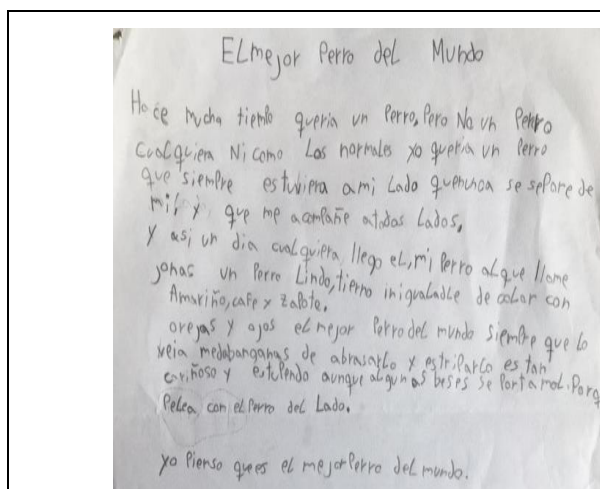 El mejor Perro del Mundo
Hace mucha tiempo queria un Perro, Pero No un Perro
Cualquiera Ni como Los normales yo queria un Perro
que siempre estuviera a mi Lado quenunca se sepore de
mil y que me acompañe atodas Lados,
y asi un dia cualquiera, llego el, mi Perro al que llame
jonas un Perro Lindo, tierno inigualadle de color con
Amariño, cafe y zapote.
orejas y ojos el mejor Perro del mundo siempre que lo
veia medabanganas de abrasarlo y estriparlo es tan
cariñoso y estupendo aunque algunas beses se Porta mal. Porq
Pelea con el Perro del Lado.
yo Pienso quees el mejor Perro del mundo.